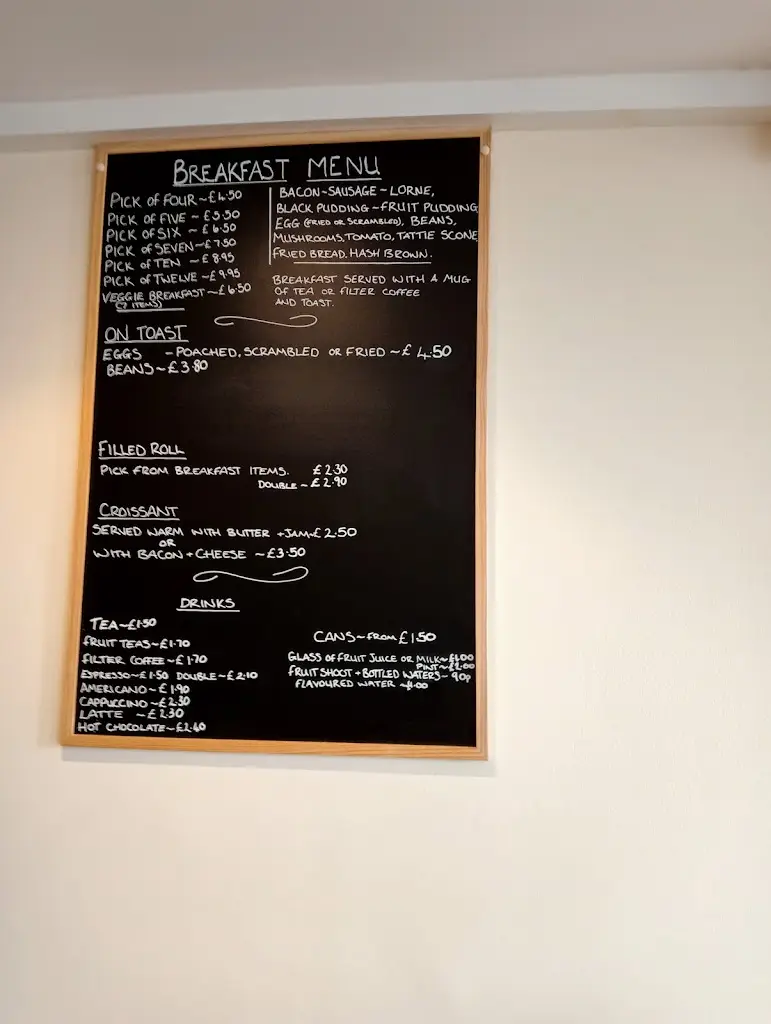 BREAKFAST MENU
PICK OF FOUR ~ £4.50
PICK OF FIVE ~ £5.50
PICK OF SIX ~ £6.50
PICK OF SEVEN ~ £7.50
PICK OF TEN ~ £8.95
PICK OF TWELVE ~ £9.95
VEGGIE BREAKFAST ~ £6.50
(7 ITEMS)
BACON ~ SAUSAGE ~ LORNE,
BLACK PUDDING ~ FRUIT PUDDING
EGG (FRIED OR SCRAMBLED), BEANS,
MUSHROOMS, TOMATO, TATTIE SCONE
FRIED BREAD, HASH BROWN.
BREAKFAST SERVED WITH A MUG
OF TEA OR FILTER COFFEE
AND TOAST.
ON TOAST
EGGS - POACHED, SCRAMBLED OR FRIED ~ £4.50
BEANS ~ £3.80
FILLED ROLL
PICK FROM BREAKFAST ITEMS. £2.30
DOUBLE ~ £2.90
CROISSANT
SERVED WARM WITH BUTTER + JAM ~ £2.50
OR
WITH BACON + CHEESE ~ £3.50
DRINKS
TEA ~ £1.50
FRUIT TEAS ~ £1.70
FILTER COFFEE ~ £1.70
ESPRESSO ~ £1.50 DOUBLE ~ £2.10
AMERICANO ~ £1.90
CAPPUCCINO ~ £2.30
LATTE ~ £2.30
HOT CHOCOLATE ~ £2.40
CANS ~ FROM £1.50
GLASS OF FRUIT JUICE OR MILK ~ £1.00
PINT ~ £2.00
FRUIT SHOOT + BOTTLED WATERS ~ 90p
FLAVOURED WATER ~ £1.00